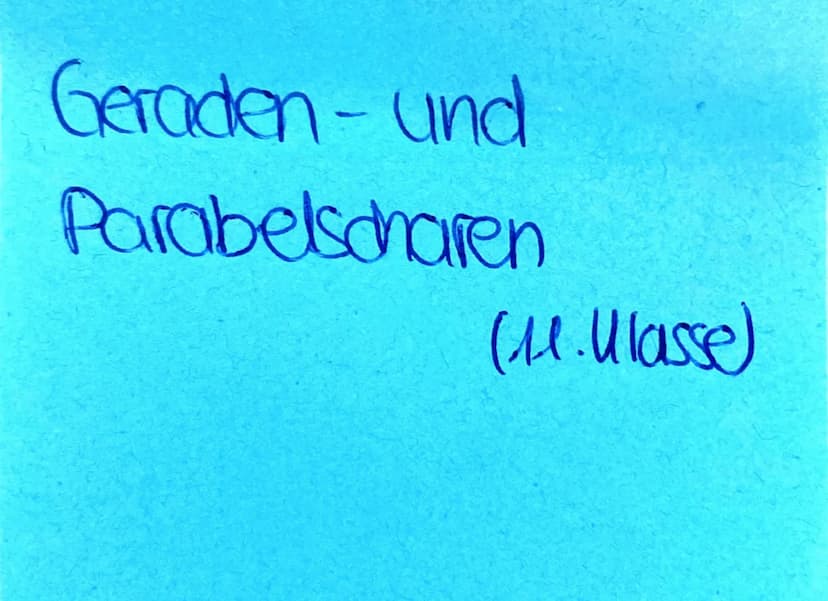 Geraden- und
Parabelscharen
(11. Klasse)